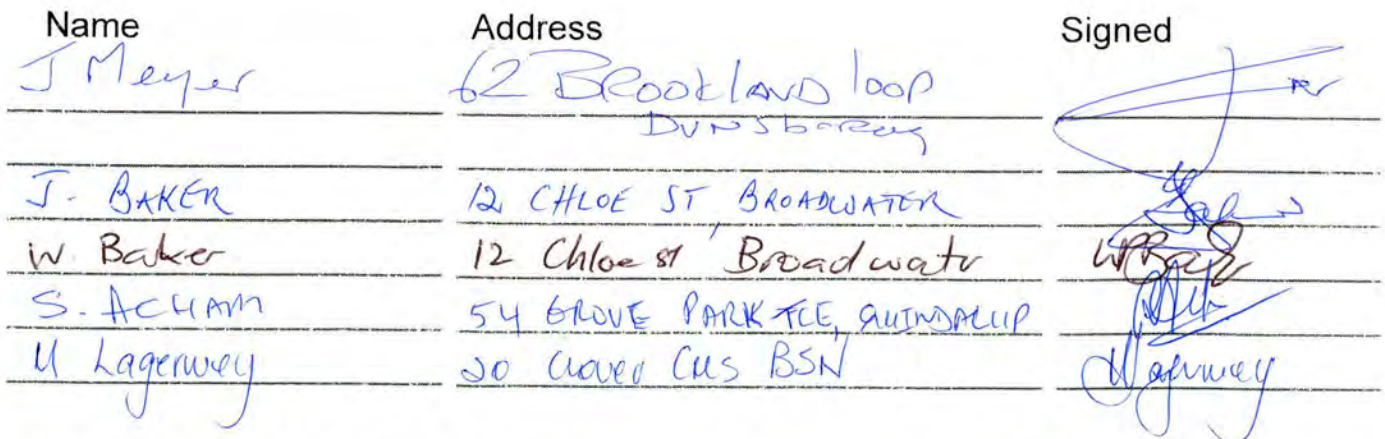 Name Address Signed
J Meyer 62 Brookland loop
Dunsborough
J. BAKER 12 CHLOE ST BROADWATER
W. Baker 12 Chloe st Broadwater WBaker
S. ACHAM 54 GROVE PARK TCE, QUINDALUP
M Lagerwey 20 Clover BSN Lagerwey